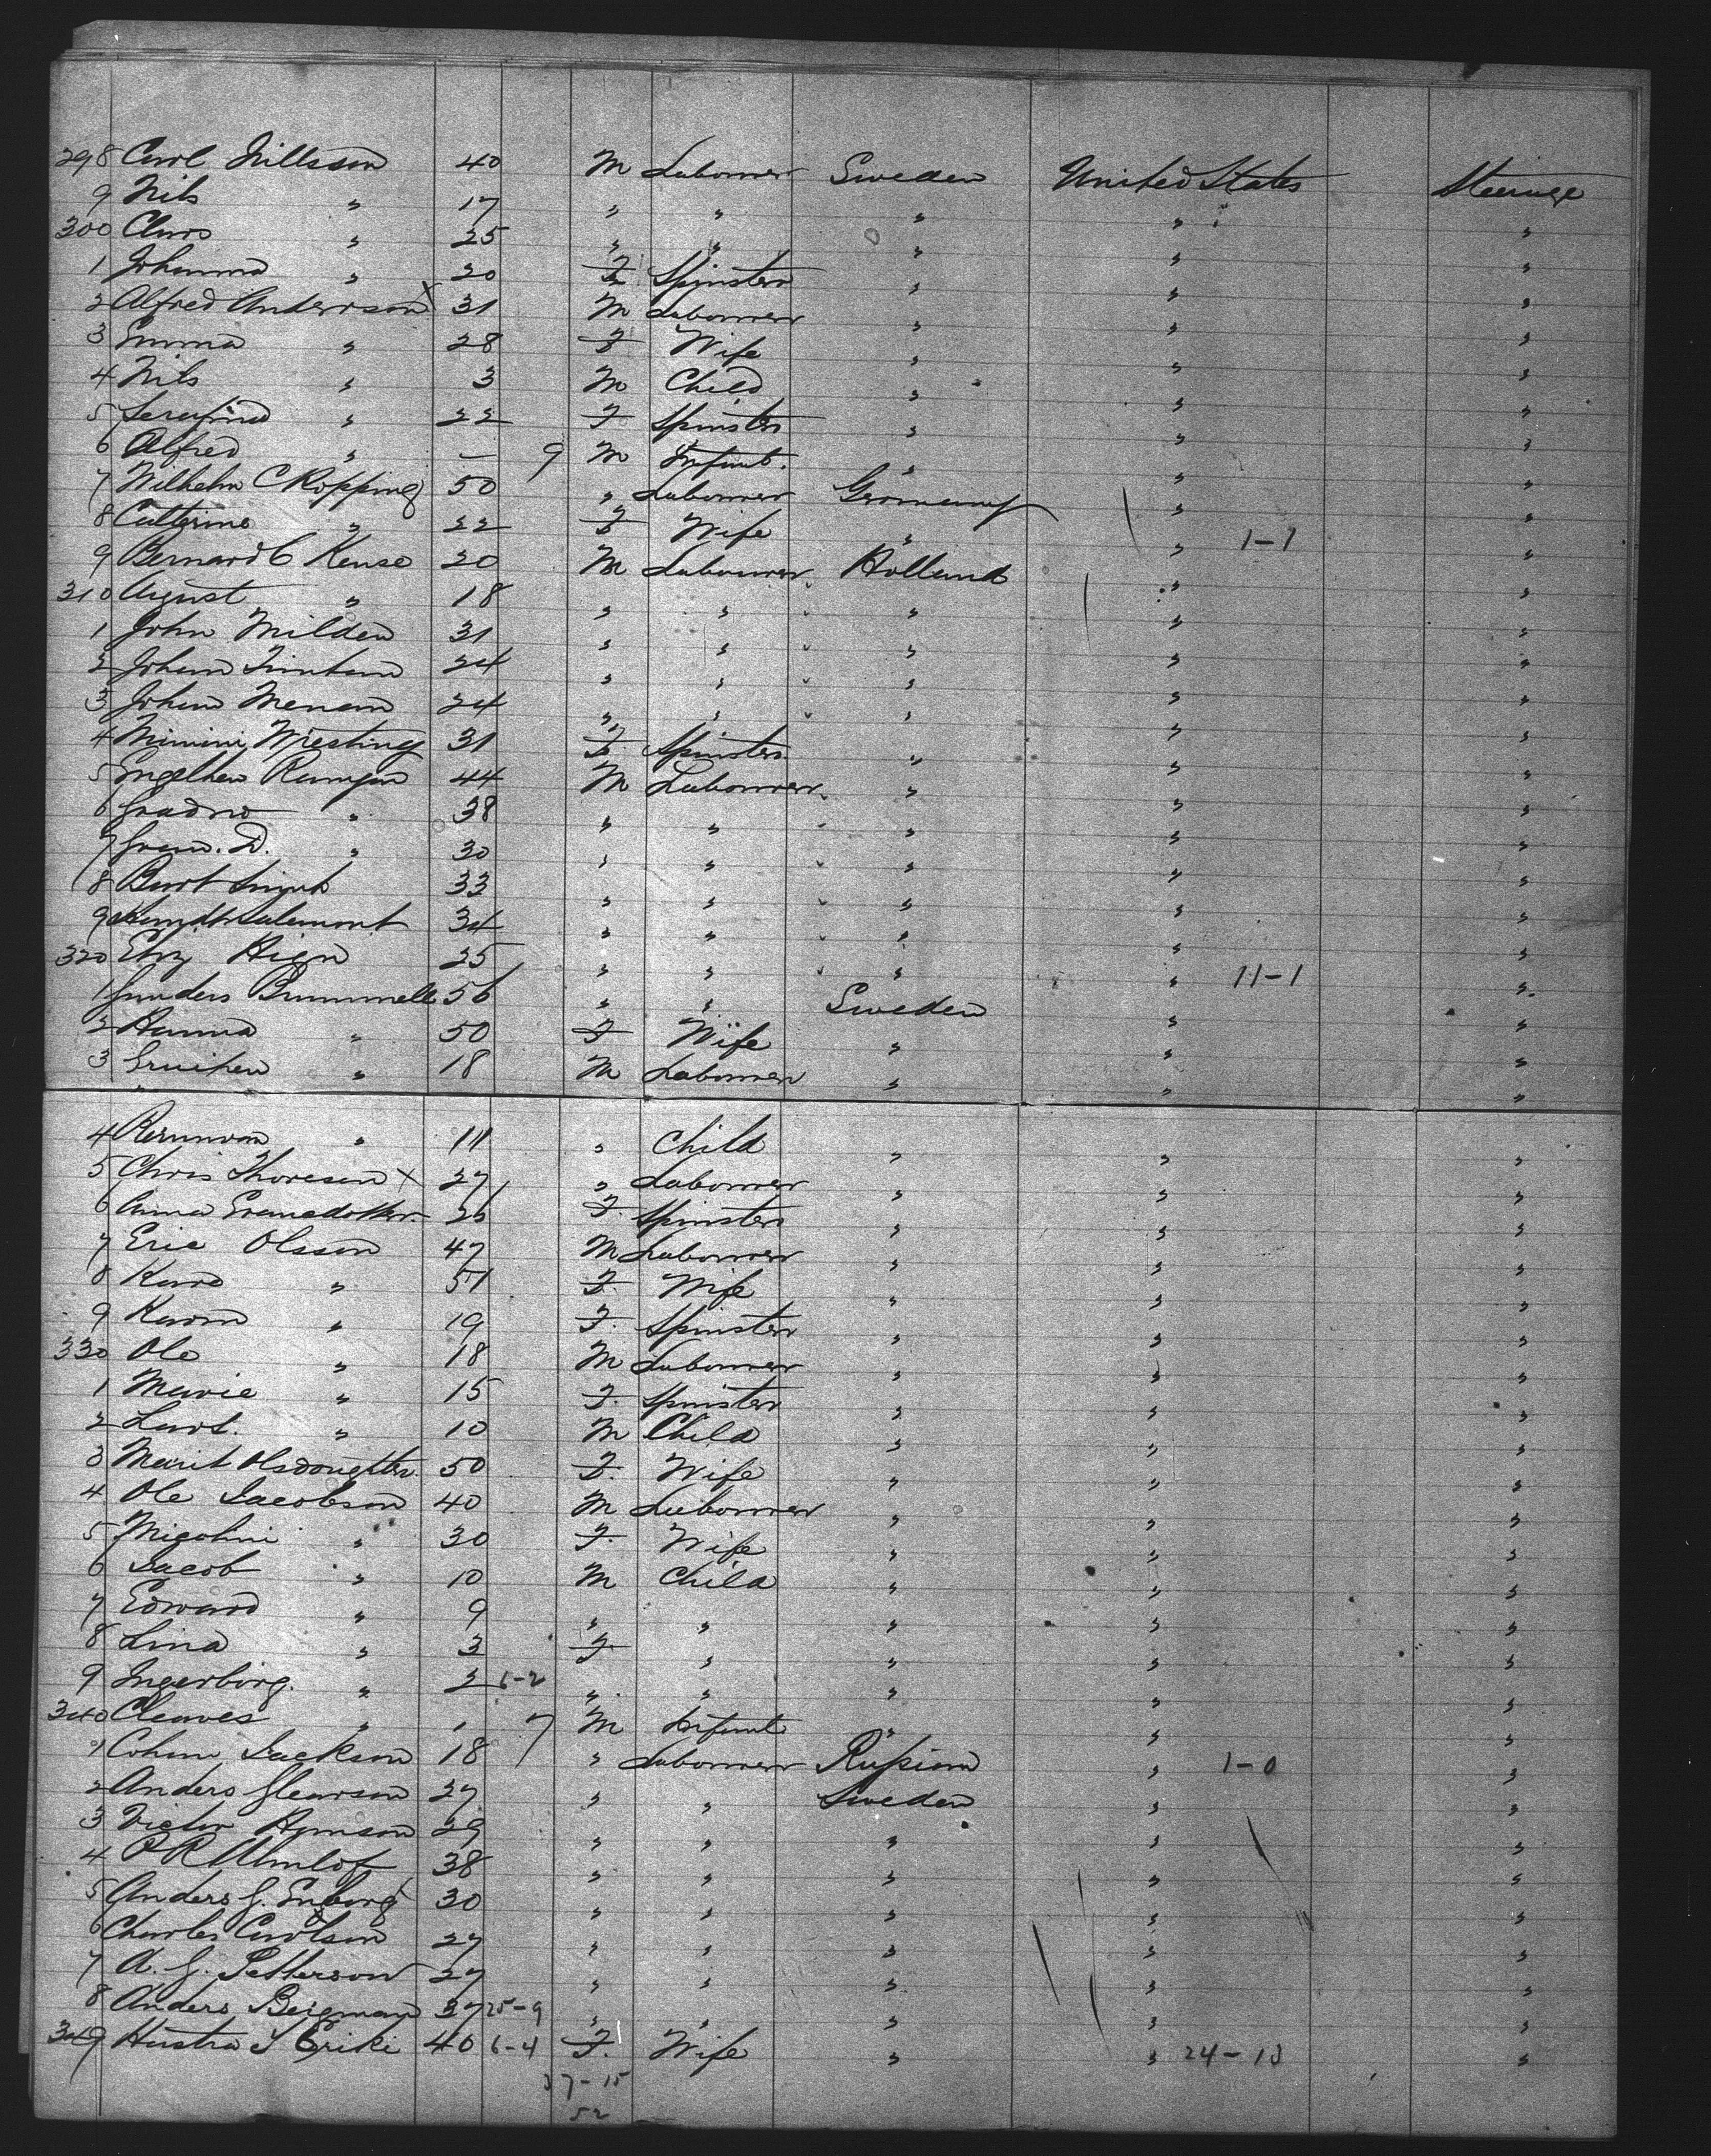 298 Carl Nillsson 40 M Labourer Sweden United States Steerage
9 Nils " 17 " " " " "
300 Claus " 25 " " " " "
1 Johanna " 20 F Spinster " " "
2 Alfred Anderson x 31 M Labourer " " "
3 Emma " 28 F Wife " " "
4 Nils " 3 M Child " " "
5 Serafina " 22 F Spinster " " "
6 Alfred " — 9 M Infant. " " "
7 Wilhelm C Ropping 50 " Labourer Germany " "
8 Catterine " 22 F Wife " " 1-1 "
9 Bernard C Kense 20 M Labourer Holland " "
310 August " 18 " " " " "
1 John Milden 31 " " " " "
2 Johann 24 " " " " "
3 Johann Menam 24 " " " " "
4 Minini Wiesting 31 F Spinster " " "
5 Engelhen 44 M Labourer " " "
6 " 38 " " " " "
7 D. " 30 " " " " "
8 Bart 33 " " " " "
9 34 " " " " "
320 25 " " " " 11-1 "
1 56 " " Sweden " "
2 Hanna " 50 F Wife " " "
3 " 18 M Labourer " " "
4 " 11 " Child " " "
5 Chris Thoresen x 27 " Labourer " " "
6 Anna 26 F. Spinster " " "
7 Eric Olsson 47 M Labourer " " "
8 " 51 F. Wife " " "
9 Karin " 19 F. Spinster " " "
330 Ole " 18 M Labourer " " "
1 Marie " 15 F. Spinster " " "
2 Lars. " 10 M Child " " "
3 Marit Olsdoughter. 50 F. Wife " " "
4 Ole Jacobson 40 M Labourer " " "
5 " 30 F. Wife " " "
6 Jacob " 10 M Child " " "
7 Edward " 9 " " " " "
8 Lina " 3 F " " " "
9 Ingerborg. " 2 6-2 " " " " "
340 " 7 M Infant " " "
1 Jackson 18 " Labourer Russian " 1-0 "
2 Anders 27 " " Sweden " "
3 Victor 29 " " " " "
4 P R Almlof 38 " " " " "
5 Anders G. Enborg 30 " " " " "
6 Charles Carlson 27 " " " " "
7 A. G. Petterson 27 " " " " "
8 Anders Bergman 37 25-9 " " " " "
349 40 6-4 F. Wife " " 24-10 "
37-15
52